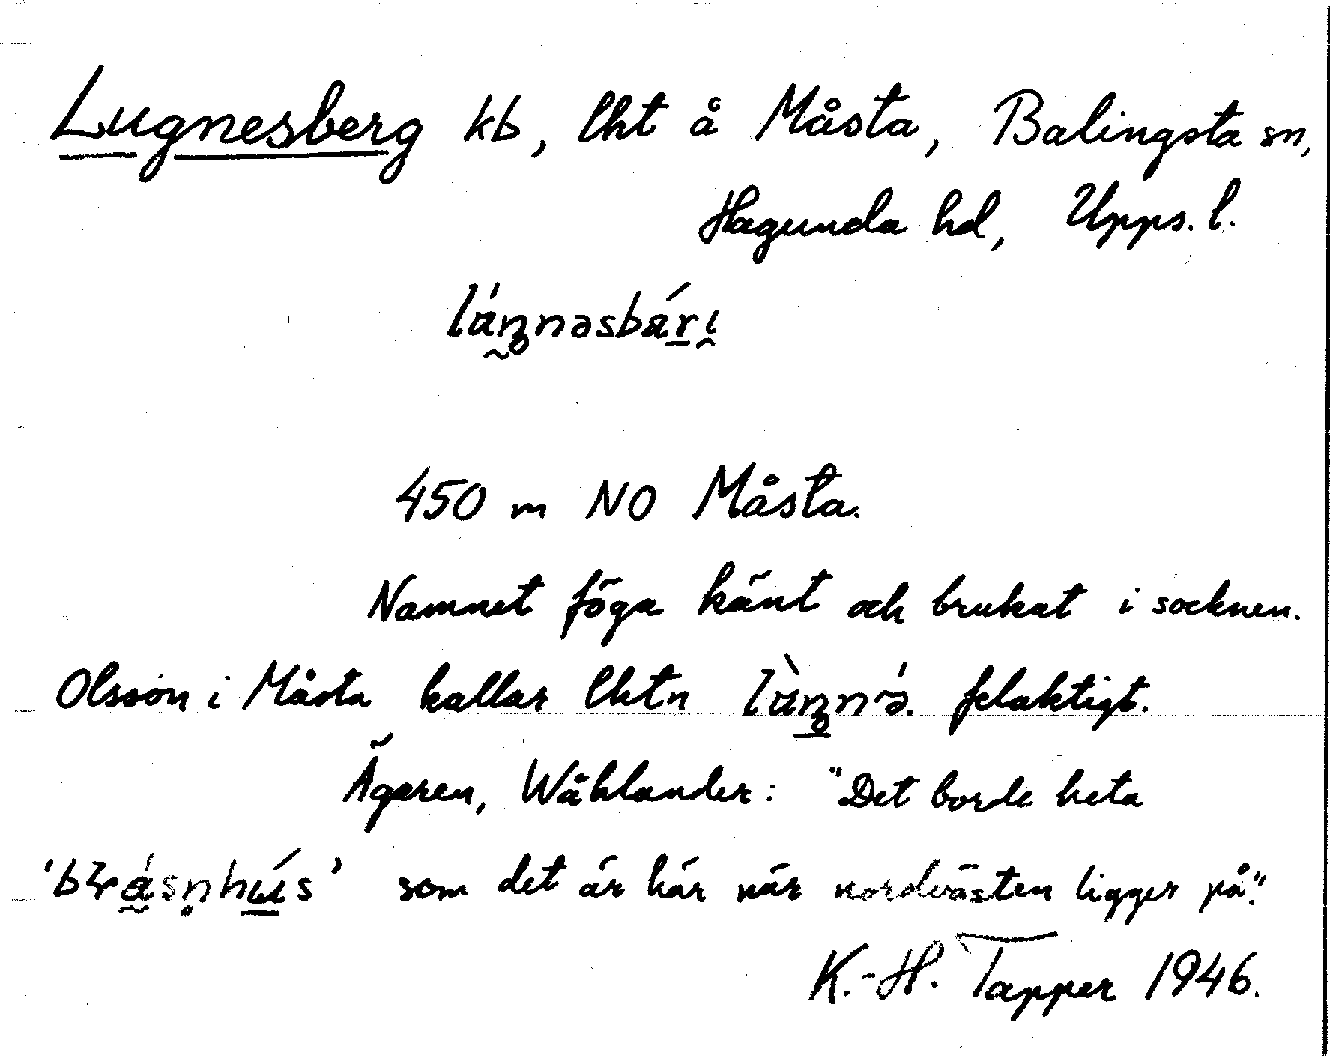 Lugnesberg kb, lht å Måsta, Balingsta sn,
Hagunda hd, Upps. l.
450 m NO Måsta.
Namnet föga känt och brukat i socknen.
Olsson i Måsta kallar lhtn felaktigt.
Ägaren, Wåhlander: "Det borde heta
som det är här när nordvästen ligger på."
K.-H. Tapper 1946.